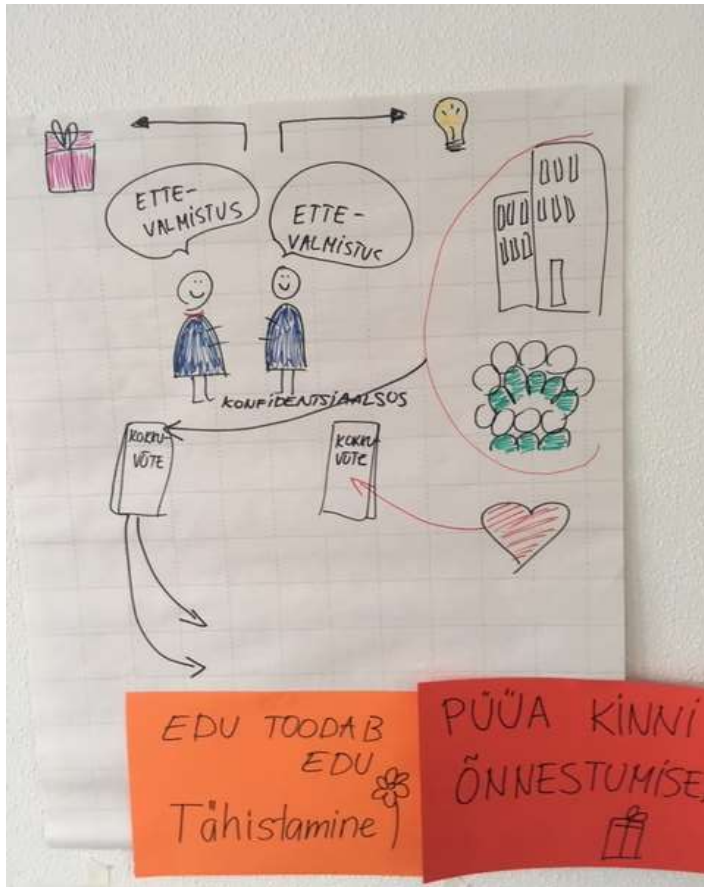 ETTE-
VALMISTUS
ETTE-
VALMISTUS
KONFIDENTSIAALSUS
KOKKU
VÕTE
KOKKU
VÕTE
EDU TOODAB
EDU
Tähistamine
PÜÜA KINNI
ÕNNESTUMISE